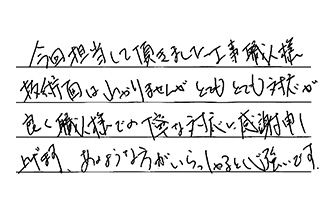 今回担当して頂きました工事職人様
技術面はわかりませんがとてもとても対応が
良く職人様での丁寧な対応に感謝申し
上げます、あのような方がいらっしゃると心強いです。